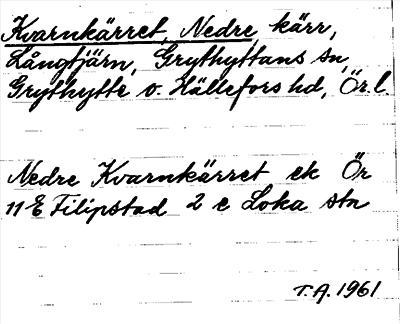 Kvarnkärret, Nedre, kärr,
Långtjärn, Grythyttans sn,
Grythytte o. Hällefors hd, Ör. l.
Nedre Kvarnkärret ek Ör
11 E Filipstad 2 c Loka stn
T.A. 1961